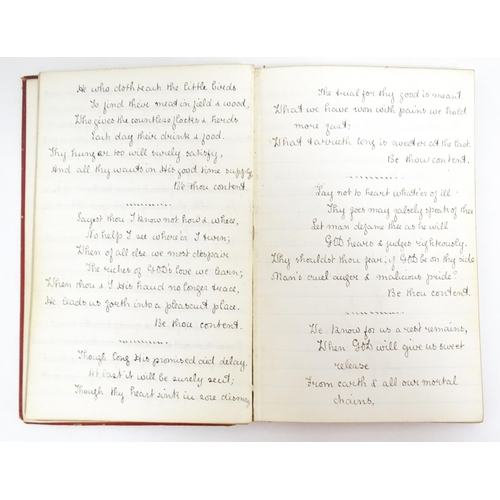 He who doth teach the little birds
To find their meat in field & wood,
Who gives the countless flocks & herds
Each day their drink & food.
Thy hunger too will surely satisfy,
And all thy wants in His good time supply
Be thou content.
Sayest thou I know not how & where,
No help I see where'er I turn;
When of all else we most despair
The riches of GOD's love we learn;
When thou & I His hand no longer trace,
He leads us forth into a pleasant place.
Be thou content.
Though long His promised aid delay,
At last it will be surely sent;
Though thy heart sink in sore dismay
The trial for thy good is meant
What we have won with pains we hold
more fast;
What tarrieth long is sweeter at the last.
Be thou content.
Lay not to heart whate'er of ill
Thy foes may falsely speak of thee
Let man defame thee as he will
GOD hears & judges righteously.
Why shouldst thou fear, if GOD be on thy side
Man's cruel anger & malicious pride?
Be thou content.
We know for us a rest remains,
When GOD will give us sweet
release
From earth & all our mortal
chains,